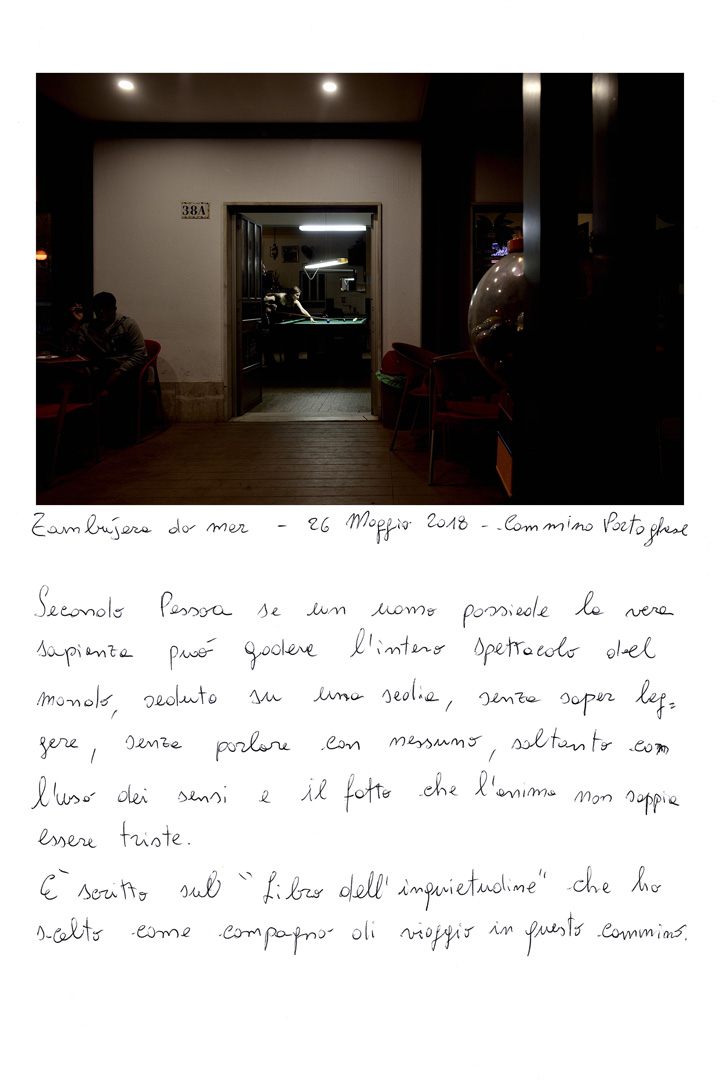 38A
Zambujera do mar - 26 Maggio 2018 - Cammino Portoghese
Secondo Pessoa se un uomo possiede la vera
sapienza può godere l'intero spettacolo del
mondo, seduto su una sedia, senza saper leg=
gere, senza parlare con nessuno, soltanto con
l'uso dei sensi e il fatto che l'anima non sappia
essere triste.
E` scritto sul "Libro dell'inquietudine" che ho
scelto come compagno di viaggio in questo cammino.